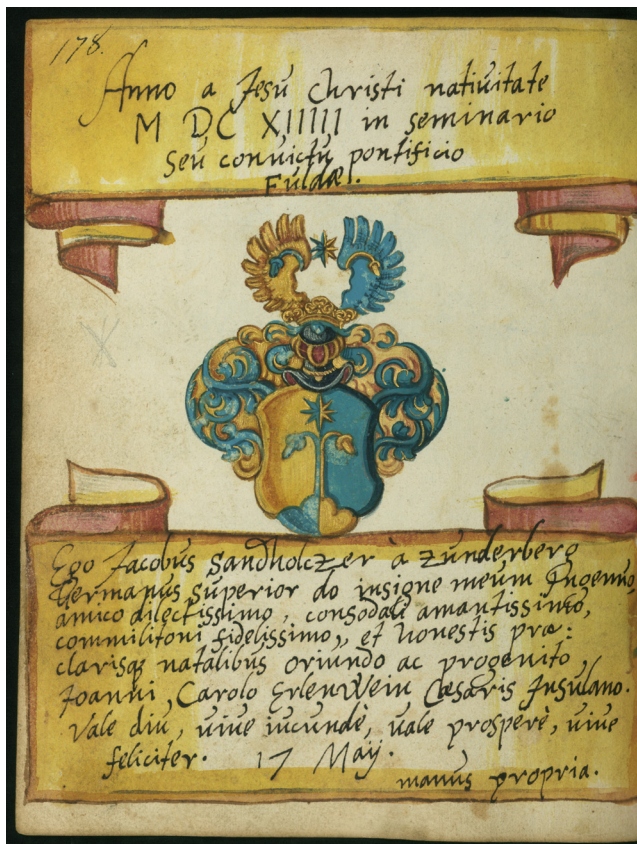 178.
Anno a Jesu Christi natiuitate
M DC XIIIII in seminario
seu conuictu pontificio
Fuldæ.
Ego Jacobus Sandholczer à Zunderberg
Germanus superior do insigne meum Ingenuo,
amico dilectissimo, consodali amantissimo,
commilitoni fidelissimo, et honestis præ:
clarisq natalibus oriundo ac progenito,
Joanni Carolo Erlenwein Cæsaris Insulano.
Vale diu, uiue iucundè, uale prosperè, uiue
feliciter. 17 Maij.
manus propria.